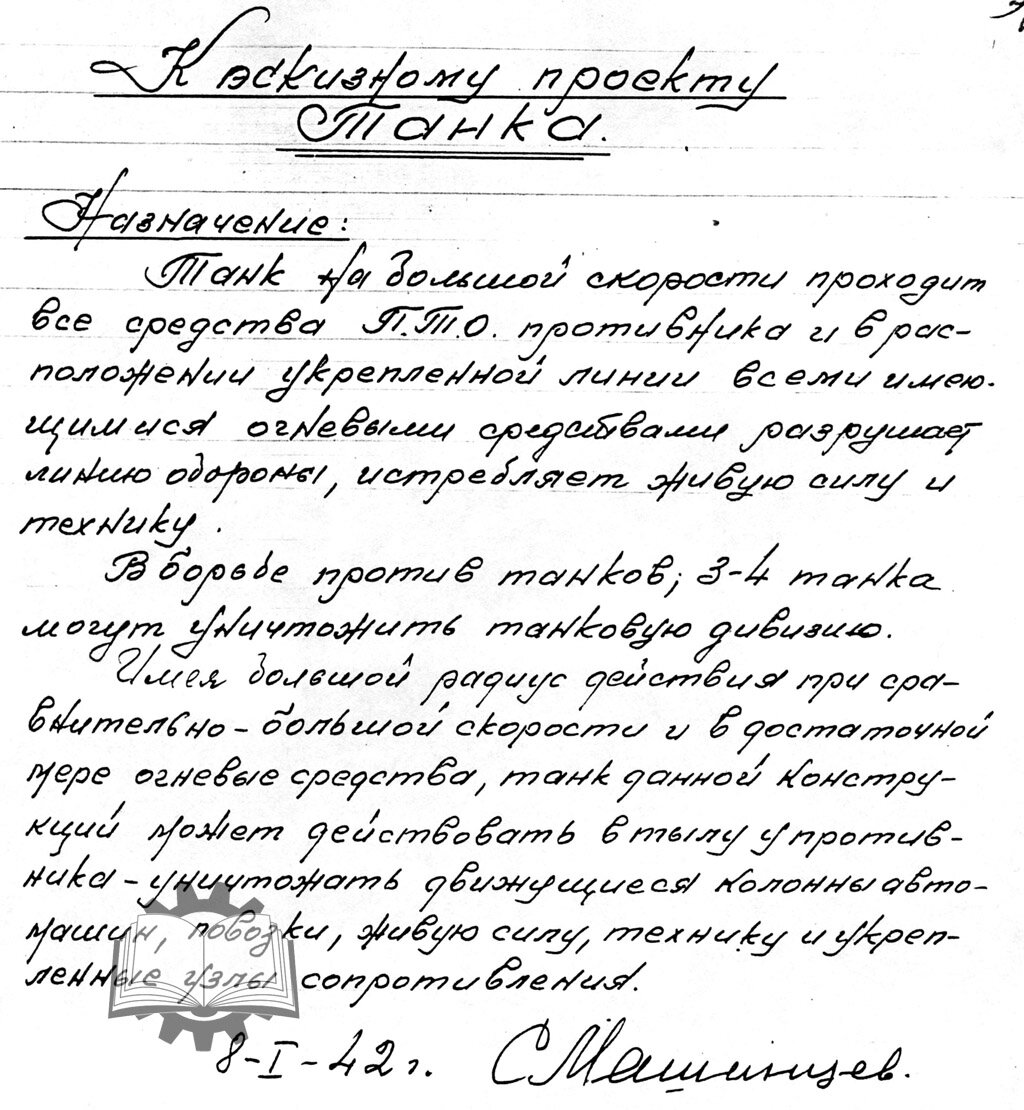 К эскизному проекту
Танка.
Назначение:
Танк на большой скорости проходит
все средства П.Т.О. противника и в рас-
положении укрепленной линии всеми имею-
щимися огневыми средствами разрушает
линию обороны, истребляет живую силу и
технику.
В борьбе против танков; 3-4 танка
могут уничтожить танковую дивизию.
Имея большой радиус действия при сра-
внительно-большой скорости и в достаточной
мере огневые средства, танк данной констру-
кций может действовать в тылу у против-
ника-уничтожать движущиеся колонны авто-
машин, повозки, живую силу, технику и укреп-
ленные узлы сопротивления.
8-I-42 г. С Машинцев.